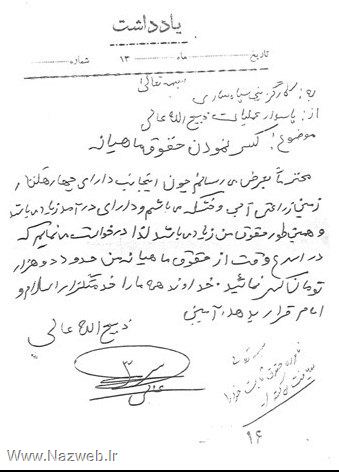 یادداشت
تاریخ ماه ۱۳ شماره
بسمه تعالی
به: کارگزینی سپاه ساری
از: پاسدار عملیات ذبیح الله عالی
موضوع: کسر نمودن حقوق ماهیانه
محترماً بعرض می رسانم چون اینجانب دارای چهار هکتار
زمین زراعتی آبی و خشکه می باشم و دارای درآمد زیاد می باشد
و همین طور حقوق من زیاد می باشد لذا درخواست می نمایم که
در اسرع وقت از حقوق ماهیانه من حدود دو هزار
تومان کسر نمائید. خداوند همه ما را خدمتگزار اسلام و
امام قرار بدهد. آمین
ذبیح الله عالی
بسمه تعالی
حقوق ثابت
۱۶
www.Nazweb.Ir